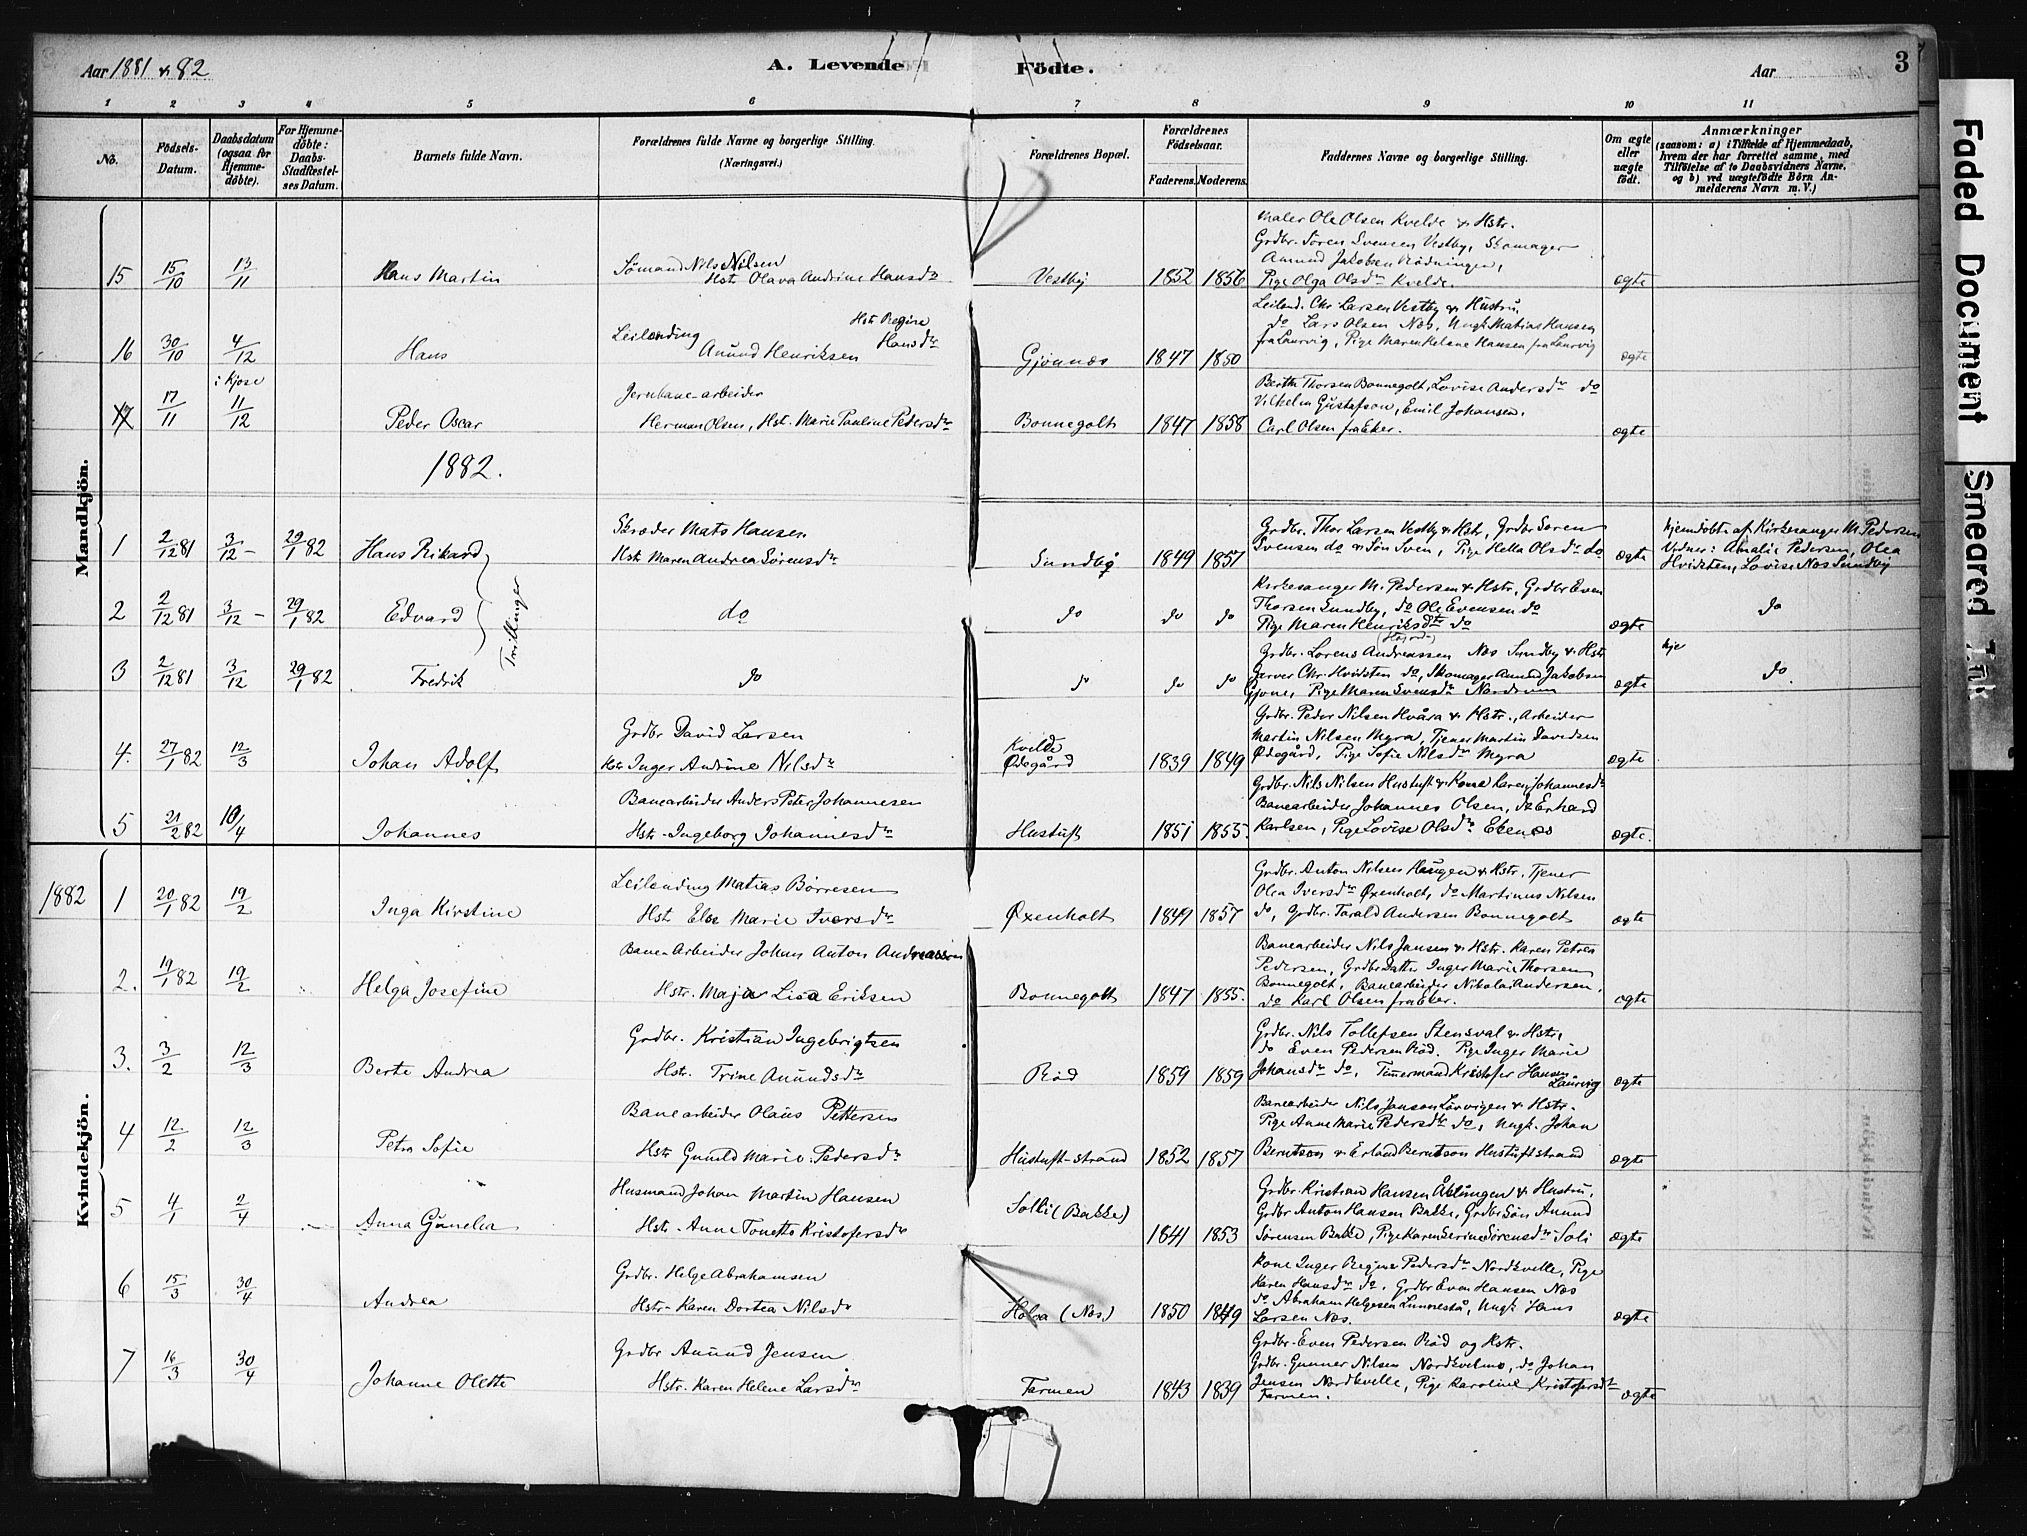 Aar 1881 & 82
A. Levende Födte.
Aar
3
1 2 3 4 5 6 7 8 9 10 11
No.
Födsels-Datum.
Daabsdatum (ogsaa for Hjemmedöbte).
For Hjemmedöbte: Daabs-Stadfæstelses Datum.
Barnets fulde Navn.
Forældrenes fulde Navne og borgerlige Stilling. (Næringsvei.)
Forældrenes Bopæl.
Forældrenes Födselsaar. Faderens. Moderens.
Faddernes Navne og borgerlige Stilling.
Om ægte eller uægte födt.
Anmærkninger (saasom: a) i Tilfælde af Hjemmedaab, hvem der har forrettet samme, med Tilföielse af to Daabsvidners Navne, og b) ved uægtefödte Börn Anmelderens Navn m. V.)
Mandkjön.
Maler Ole Olsen Kvelde & Hstr.
Grdbr. Søren Svensen Vestby, Skomager
Anund Jakobsen Rødningen,
15 15/10 13/11 Hans Martin Sømand Nils Nilsen Hstr. Olava Andrine Hansdtr Vestby 1852 1856 Pige Olga Olsdtr Kvelde. ægte
Leiland. Chr Larsen Vestby & Hustru
do Lars Olsen Næs, Ungk. Matias Hansen
16 30/10 4/12 Hans Leilending Anund Henriksen Hstr Regine Hansdtr Gjønnæs 1847 1850 fra Laurvig, Pige Maren Helene Hansen fra Laurvig ægte
i Kjose
Berthe Thorsen Bonnegolt, Lovise Andersdtr do
Vilhelm Gustafson, Emil Johansen,
17 17/11 11/12 Peder Oscar Jernbane-arbeider Herman Olsen, Hst. Marie Pauline Pedersdtr Bonnegolt 1847 1858 Carl Olsen fra Eker. ægte
1882.
1 2/12 81 3/12 - 29/1 82 Hans Rikard Skræder Mats Hansen Hstr Maren Andrea Sørensdtr Sundby 1849 1857 Grdbr. Thor Larsen Vestby & Hstr, Grdbr Søren
Svensen do & Søn Sven, Pige Hella Olsdtr do ægte hjemdøbte af Kirkesanger M. Pedersen
Vidner: Amalie Pedersen, Olea
Hvidsten, Lovise Næs Sundby
Trillinger
2 2/12 81 3/12 - 29/1 82 Edvard do do do do Kirkesanger M. Pedersen & Hstr, Grdbr Even
Thorsen Sundby, do Ole Evensen do
Pige Maren Henriksdtr do ægte do
3 2/12 81 3/12 29/1 82 Fredrik do do do do Grdbr. Lorens Andreassen Næs Sundby & Hstr
Garver Chr. Hvidsten do, Skomager Anund Jakobsen
Gjone, Pige Maren Svensdtr Nordrum ægte hje do.
4. 27/1 82 12/3 Johan Adolf Grdbr David Larsen Hstr Inger Andrine Nilsdtr Kvelde Ødegård 1839 1849 Grdbr. Peder Nilsen Hvåra & Hstr., Arbeider
Martin Nilsen Myra, Tjener Martin Davidsen
Ødegård, Pige Sofie Nilsdtr Myra ægte
5 21/2 82 10/4 Johannes Banearbeider Anders Peter Johannesen Hstr. Ingeborg Johannesdtr Hustuft 1851 1855. Grdbr. Nils Nilsen Hustuft & Kone Karen Johannesdtr
Banearbeider Johannes Olsen, do Erhard
Karlsen, Pige Lovise Olsdtr Ekenæs ægte.
1882
Kvindekjön.
1 20/1 82 19/2 Inga Kirstine Leilending Matias Børresen Hst. Else Marie Iversdtr Øxenholt 1849 1857 Grdbr. Anton Nilsen Haugen & Hstr, Tjener
Olea Iversdtr Øxenholt, do Martinus Nilsen
do, Grdbr. Tarald Andersen Bonnegolt ægte
2. 19/1 82 19/2 Helga Josefine Bane-Arbeider Johan Anton Andreassen Hstr. Maja Lisa Eriksen Bonnegolt 1847 1855. Banearbeider Nils Jansen & Hstr. Karen Petrea
Pedersen, Grdbr Datter Inger Marie Thorsen
Bonnegolt, Banearbeider Nikolai Andersen,
do Karl Olsen fra Eker. ægte
3. 3/2 12/3 Berte Andrea Grdbr. Kristian Ingebrigtsen Hstr. Trine Anundsdtr Rød 1859 1859 Grdbr. Nils Tollefsen Stensval & Hstr,
do Even Pedersen Rød. Pige Inger Marie
Johansdtr do, Tømmermand Kristofer Hansen Laurvig ægte
4 12/2 12/3 Petra Sofie Banearbeider Olaus Pettersen Hstr Gunild Marie Pedersdtr Hustuft-strand 1852 1857 Banearbeider Nils Janson Lorvigen & Hstr.
Pige Anne Marie Pedersdtr do, Ungk. Johan
Berntson & Erland Berntson Hustuftstrand ægte
5 4/1 2/4 Anna Gunelia Husmand Johan Martin Hansen Hstr. Anne Tonette Kristofersdtr Solli (Bakke) 1841 1853 Grdbr. Kristian Hansen Åklungen & Hustru,
Grdbr Anton Hansen Bakke, Grdbr Søn Anund
Sørensen Bakke, Pige Karen Serine Sørensdtr Soli ægte
6 15/3 30/4 Andrea Grdbr. Helge Abrahamsen Hstr. Karen Dortea Nilsdtr Holva (Næs) 1850 1849 Kone Inger Regine Pedersdtr Nordkvelle, Pige
Karen Hansdtr do, Grdbr Even Hansen Næs
do Abraham Helgesen Lunnestå, Ungk. Hans
Larsen Næs. ægte
7 16/3 30/4 Johanne Olette Grdbr Anund Jensen Hstr. Karen Helene Larsdtr Farmen 1843 1839 Grdbr. Even Pedersen Rød og Hstr.
Grdbr. Gunner Nilsen Nordkvelmo, do Johan
Jensen Nordkvelle, Pige Karoline Kristofersdtr
Farmen. ægte
Faded Document
Smeared Ink